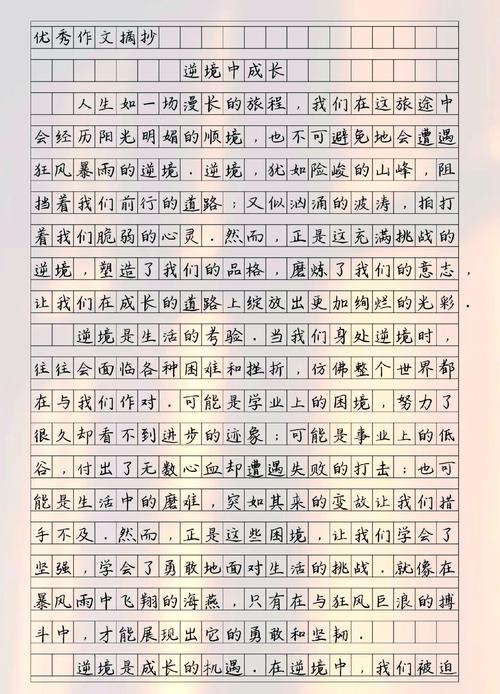 优秀作文摘抄
逆境中成长
人生如一场漫长的旅程，我们在这旅途中
会经历阳光明媚的顺境，也不可避免地会遭遇
狂风暴雨的逆境．逆境，犹如险峻的山峰，阻
挡着我们前行的道路；又似汹涌的波涛，拍打
着我们脆弱的心灵．然而，正是这充满挑战的
逆境，塑造了我们的品格，磨炼了我们的意志，
让我们在成长的道路上绽放出更加绚烂的光彩．
逆境是生活的考验．当我们身处逆境时，
往往会面临各种困难和挫折，仿佛整个世界都
在与我们作对．可能是学业上的困境，努力了
很久却看不到进步的迹象；可能是事业上的低
谷，付出了无数心血却遭遇失败的打击；也可
能是生活中的磨难，突如其来的变故让我们措
手不及．然而，正是这些困境，让我们学会了
坚强，学会了勇敢地面对生活的挑战．就像在
暴风雨中飞翔的海燕，只有在与狂风巨浪的搏
斗中，才能展现出它的勇敢和坚韧．
逆境是成长的机遇．在逆境中，我们被迫